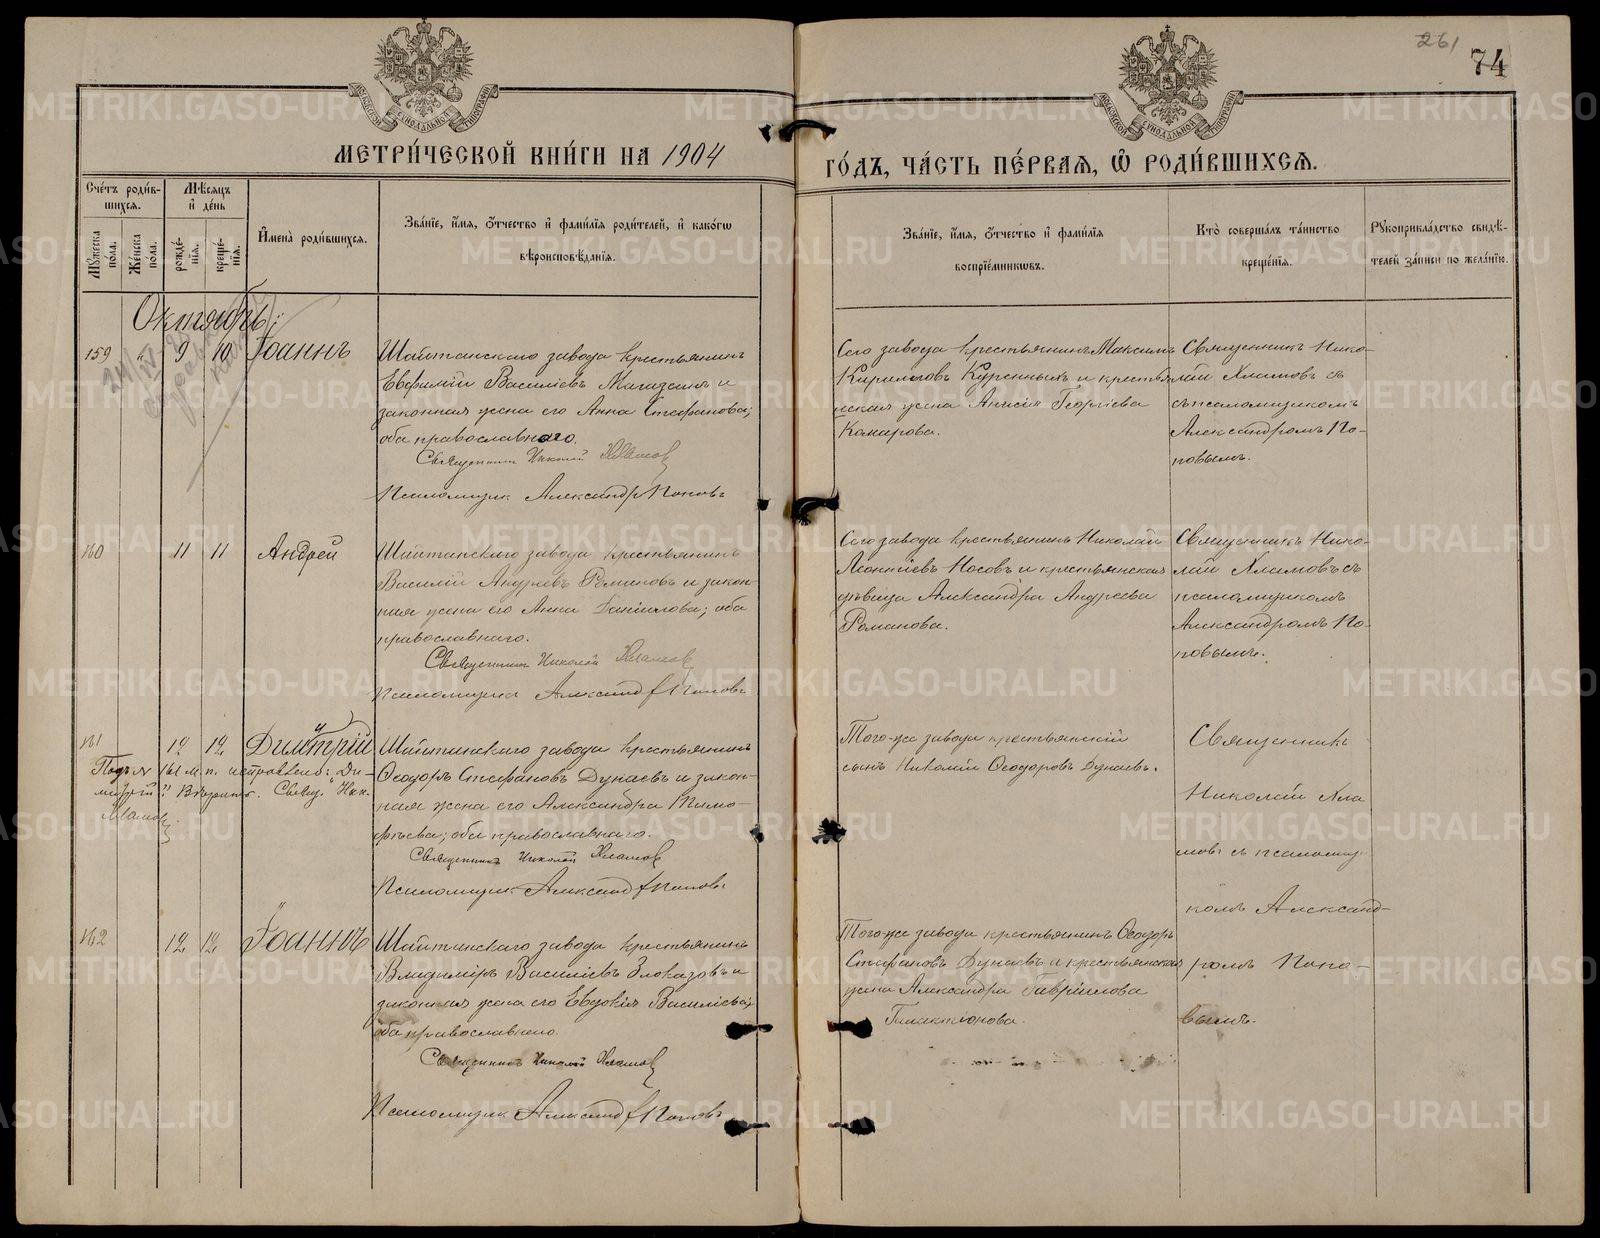 261
74
МОСКОВСКОЙ СѴНОДАЛЬНОЙ ТИПОГРАФІИ
МОСКОВСКОЙ СѴНОДАЛЬНОЙ ТИПОГРАФІИ
МЕТРИ́ЧЕСКОЙ КНИ́ГИ НА 1904
ГО́ДЪ, ЧА́СТЬ ПЕ́РВАЯ, Ѡ РОДИ́ВШИХСЯ.
Сче́тъ роди́в-
шихся.
Мꙋ́жеска по́ла.
Же́нска по́ла.
Мѣ́сяцъ
и де́нь
рожде́-
нїя.
креще́-
нїя.
Имена̀ роди́вшихся.
Зва́нїе, и́мя, о́тчество и фами́лїя роди́телей, и како́гѡ
вѣроисповѣ́данїя.
Зва́нїе, и́мя, о́тчество и фами́лїя
воспрїе́мникѡвъ.
Кто̀ соверша́лъ та́инство
креще́нїя.
Рꙋкоприкла́дство свидѣ́-
телей за́писи по жела́нїю.
Октябрь
159 " 9 10 Іоаннъ
Шайтанскаго завода крестьянинъ
Евфимій Василіевъ Магазеинъ и
законная жена его Анна Стефанова;
оба православнаго.
Священникъ Николай Хламовъ
Псаломщик Александр Поповъ
Сего завода крестьянинъ Максимъ
Кириловъ Куренныхъ и крестья-
нская жена Анисія Георгіева
Комарова.
Священникъ Нико-
лай Хламовъ съ
съ псаломщикомъ
Александромъ По-
повымъ.
160 11 11 Андрей
Шайтанскаго завода крестьянинъ
Василій Андреевъ Романовъ и закон-
ная жена его Анна Даніилова; оба
православнаго.
Священникъ Николай Хламовъ
Псаломщикъ Александр Поповъ
Сего завода крестьянинъ Николай
Леонтіевъ Носовъ и крестьянская
дѣвица Александра Андреева
Романова.
Священникъ Нико-
лай Хламовъ съ
псаломщикомъ
Александромъ По-
повымъ.
161 12 12 Димитрій
Подъ № 161 м. п. исправлено: „Ди-
митрій" Вѣрно. Свящ. Ник.
Хламовъ
Шайтанскаго завода крестьянинъ
Ѳеодоръ Стефановъ Дунаевъ и закон-
ная жена его Александра Тимо-
фѣева; оба православнаго.
Священникъ Николай Хламовъ
Псаломщик Александр Поповъ
Того-же завода крестьянскій
сынъ Николай Ѳеодоровъ Дунаевъ.
Священникъ
Николай Хла
мовъ съ псаломщи
комъ Александ-
ромъ Попо-
вымъ.
162 12 12 Іоаннъ
Шайтанскаго завода крестьянинъ
Владиміръ Василіевъ Злоказовъ и
законная жена его Евдокія Василіева;
оба православнаго.
Священникъ Николай Хламовъ
Псаломщик Александр Поповъ
Того-же завода крестьянинъ Ѳеодоръ
Стефановъ Дунаевъ и крестьянская
жена Александра Гавріилова
Галактіонова.
METRIKI.GASO-URAL.RU